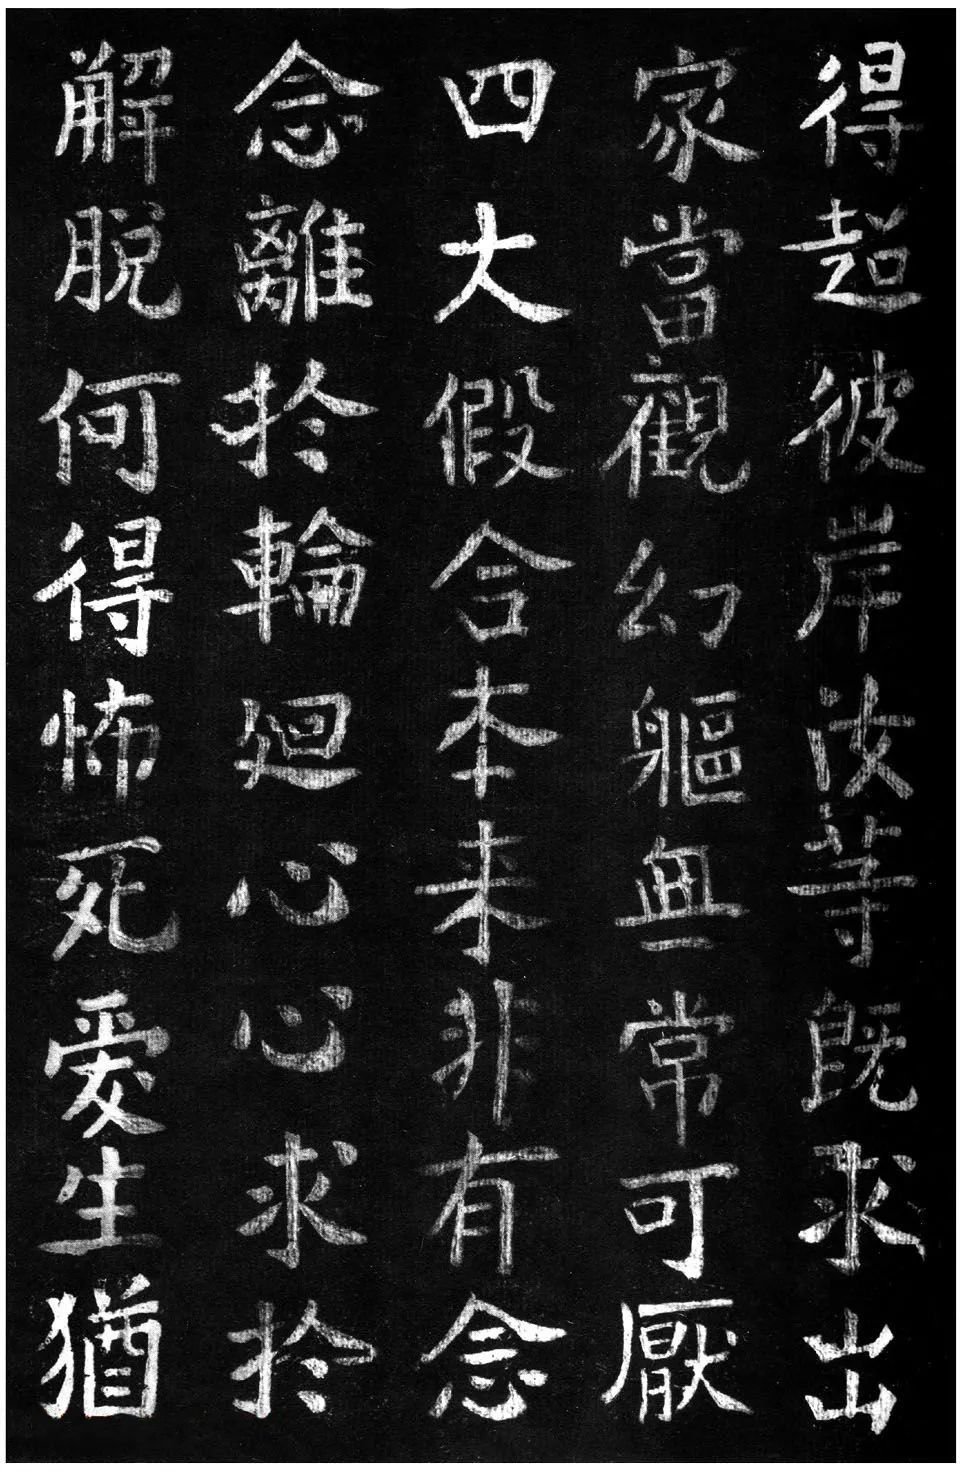 得超彼岸汝等既求出
家當觀幻軀無常可厭
四大假合本来非有念
念離於輪迴心心求於
解脱何得怖死愛生猶